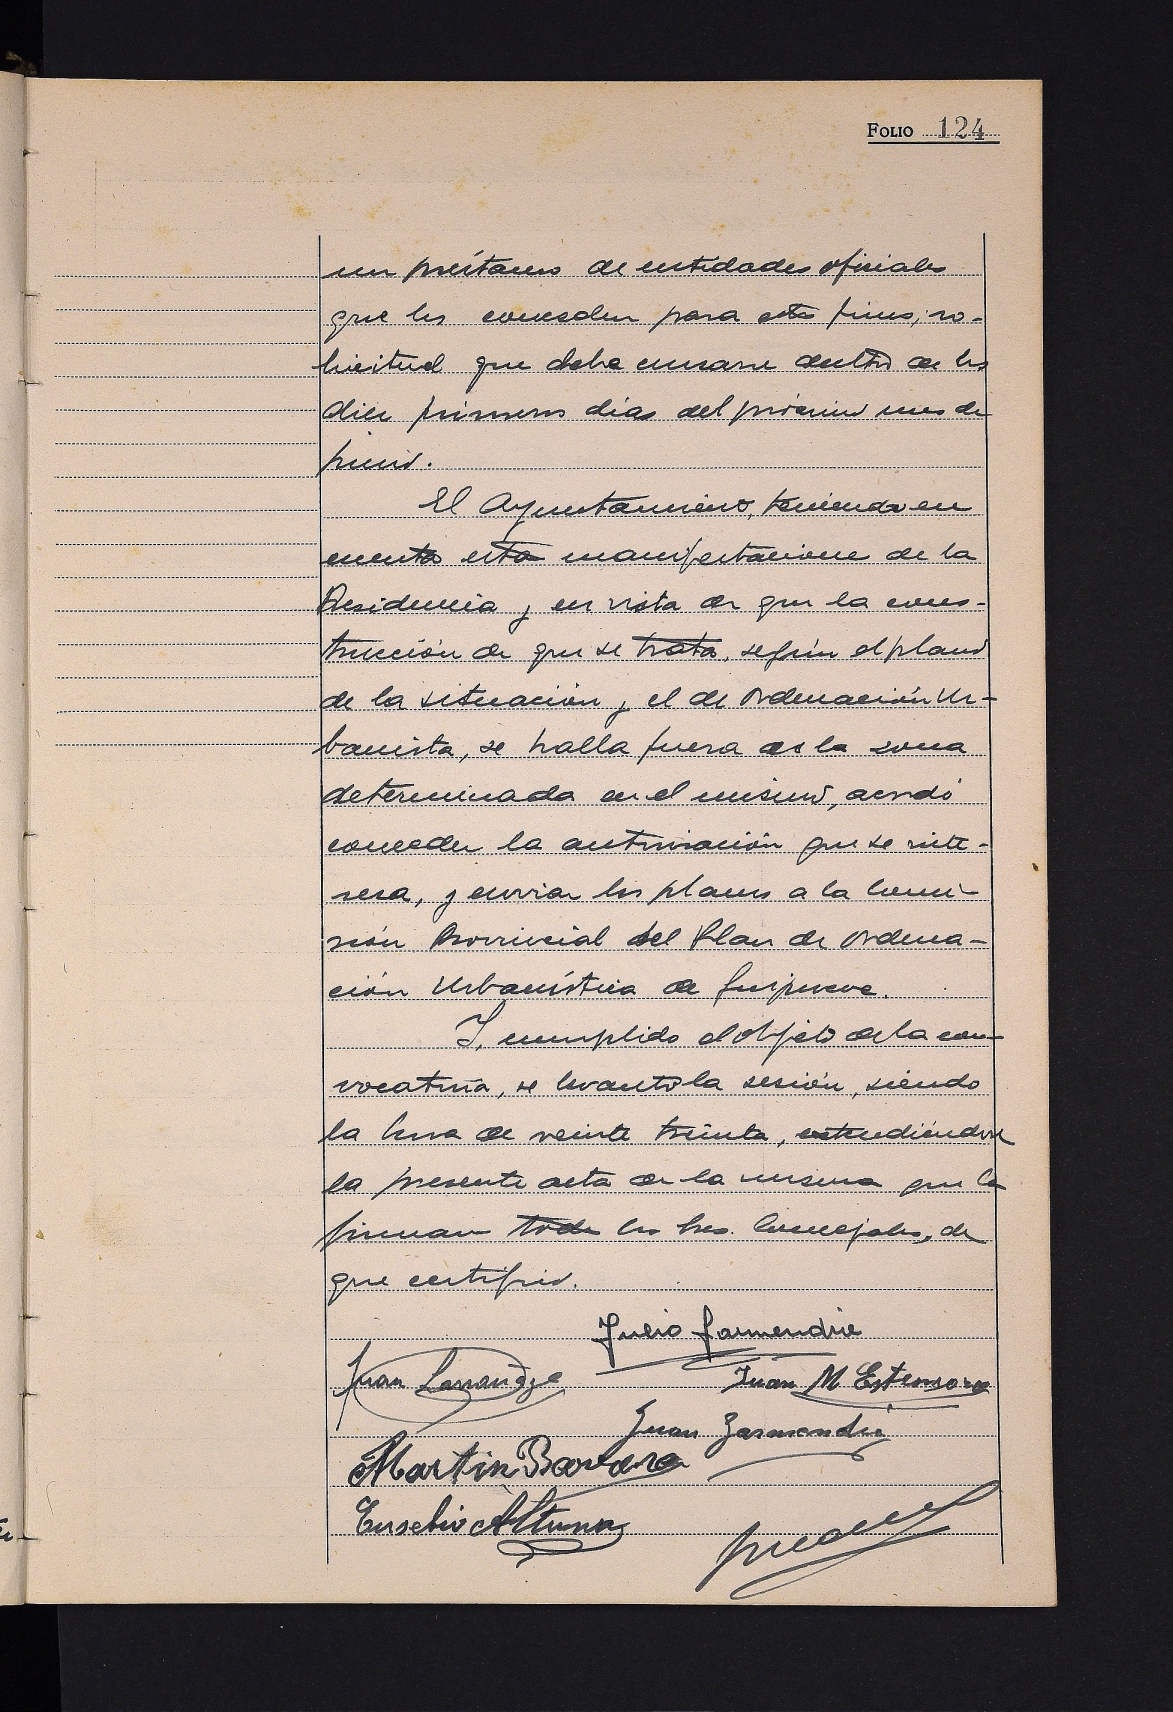 FOLIO 124
un préstamo de entidades oficiales
que los conceden para estos fines, so-
licitud que debe cursarse dentro de los
diez primeros días del próximo mes de
junio.
El Ayuntamiento, teniendo en
cuenta esta manifestacione de la
Presidencia y en vista de que la cons-
trucción de que se trata, según el plano
de la situación y el de Ordenación Ur-
banista, se halla fuera de la zona
determinada en el mismo, acordó
conceder la autorización que se inte-
resa, y enviar los planos a la Comi-
sión Provincial del Plan de Ordena-
ción Urbanística de Guipuzcoa.
Y, cumplido el objeto de la con-
vocatoria, se levantó la sesión, siendo
la hora de veinte treinta, extendiéndose
la presente acta de la misma que la
firman todos los Sres. Concejales, de
que certifico.
Julio Garmendia
Juan Larrañaga
Juan M Estensoro
Juan Garmendia
Martin
Eusebio Altuna